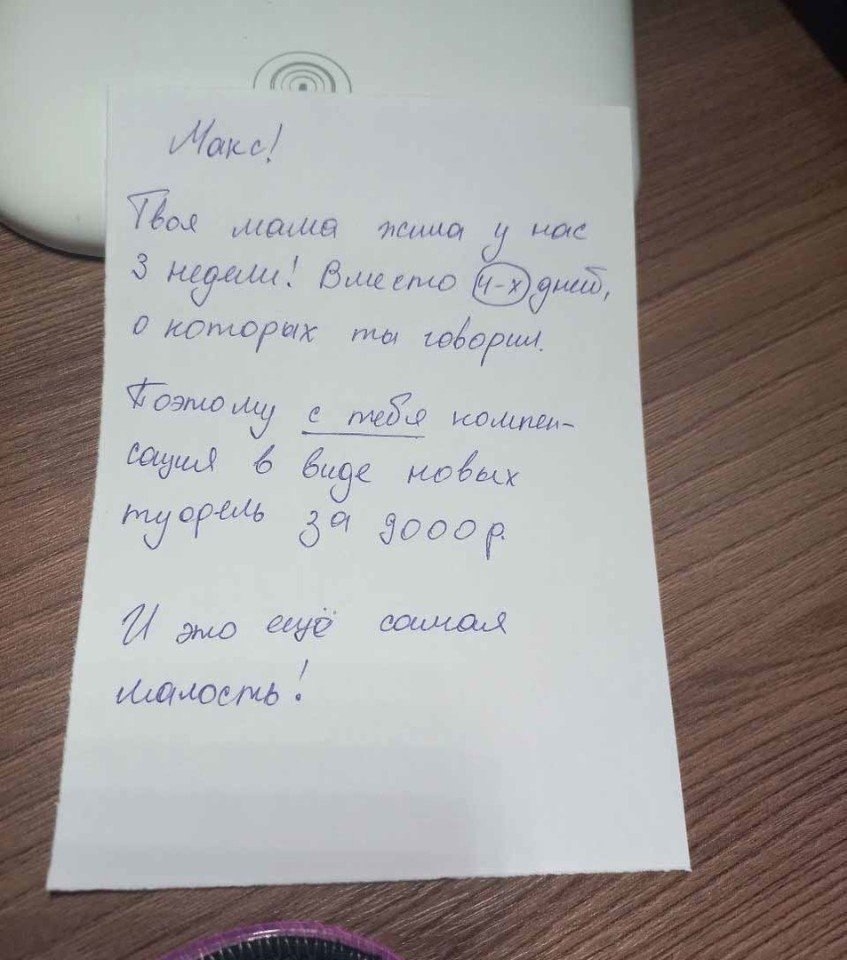 Макс!
Твоя мама жила у нас
3 недели! Вместо 4-х дней,
о которых ты говорил.
Поэтому с тебя компен-
сация в виде новых
туфель за 9000р.
И это ещё самая
малость!